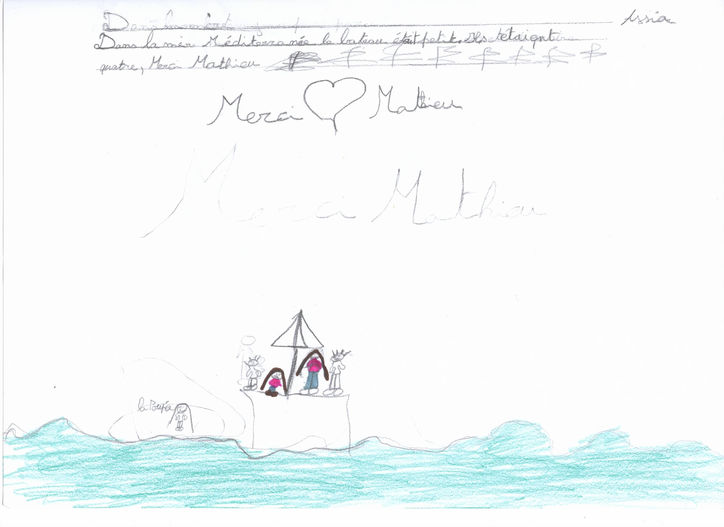 Assia
Dans la mer Méditerranée le bateau était petit. Ils étaignt
quatre, Merci Mathieu
Merci Mathieu
Merci Mathieu
la Poupée